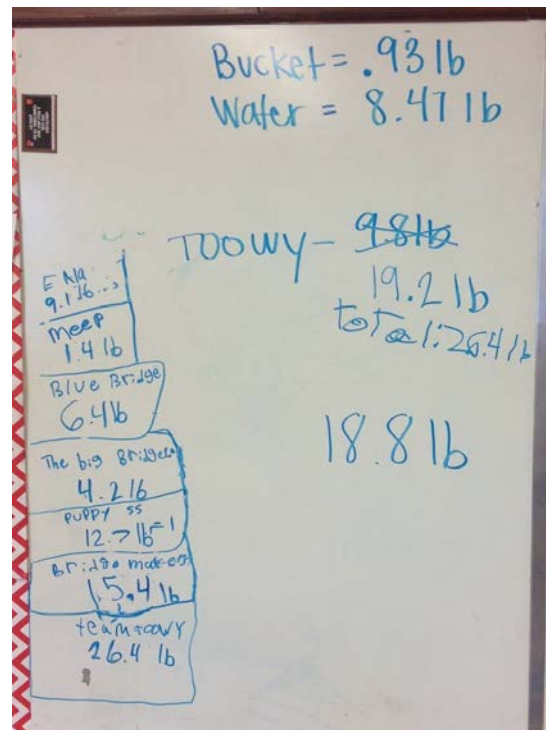 Bucket = .93 lb
Water = 8.47 lb
TOOWY - 9.8 lb
19.2 lb
total: 26.4 lb
18.8 lb
9.1 lb
meep
1.4 lb
Blue Bridge
6.4 lb
The big Bridges
4.2 lb
PUPPY ss
12.7 lb = 1
Bridge makers
15.4 lb
team toowy
26.4 lb